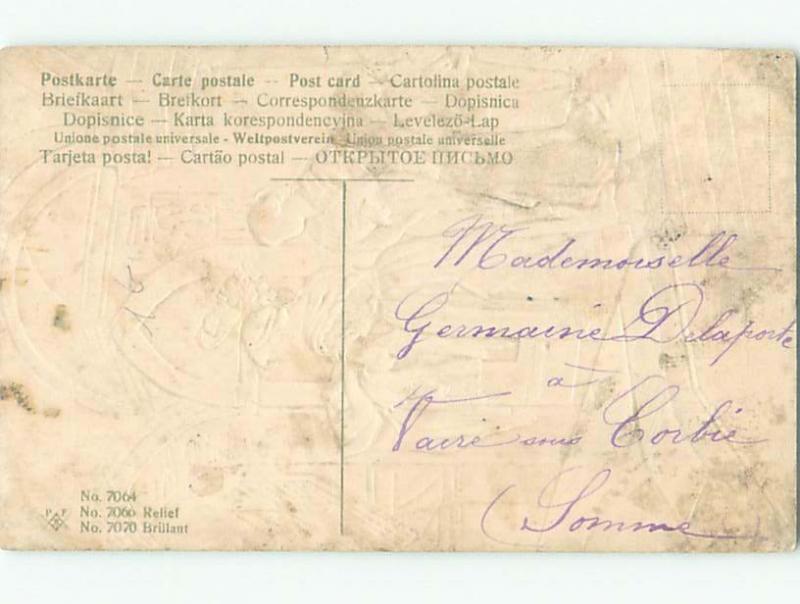 Postkarte — Carte postale — Post card — Cartolina postale
Briefkaart — Brefkort — Correspondenzkarte — Dopisnica
Dopisnice — Karta korespondencyjna — Levelező-Lap
Unione postale universale - Weltpostverein - Union postale universelle
Tarjeta postal — Cartão postal — ОТКРЫТОЕ ПИСЬМО
Mademoiselle
Germaine Delaporte
à
Vaire sous Corbie
(Somme)
No. 7064
P F No. 7066 Relief
No. 7070 Brillant